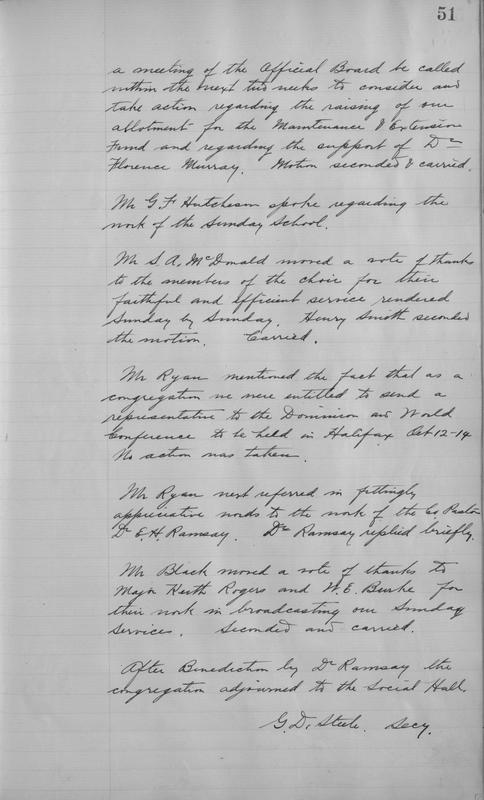 51
a meeting of the Official Board be called
within the next two weeks to consider and
take action regarding the raising of our
allotment for the Maintenance & Extension
Fund and regarding the support of Dr
Florence Murray. Motion seconded & carried.
Mr G F Hutcheson spoke regarding the
work of the Sunday School.
Mr S. A. McDonald moved a vote of thanks
to the members of the choir for their
faithful and efficient service rendered
Sunday by Sunday. Henry Smith seconded
the motion. Carried.
Mr Ryan mentioned the fact that as a
congregation we were entitled to send a
representative to the Dominion and World
Conference to be held in Halifax Oct 12-14
No action was taken.
Mr Ryan next referred in fittingly
appreciative words to the work of the Co Pastor
Dr E. H. Ramsay. Dr Ramsay replied briefly.
Mr Black moved a vote of thanks to
Major Keith Rogers and W. E. Burke for
their work in broadcasting our Sunday
Services. Seconded and carried.
After Benediction by Dr Ramsay the
congregation adjourned to the Social Hall.
G. D. Steele. Secy.